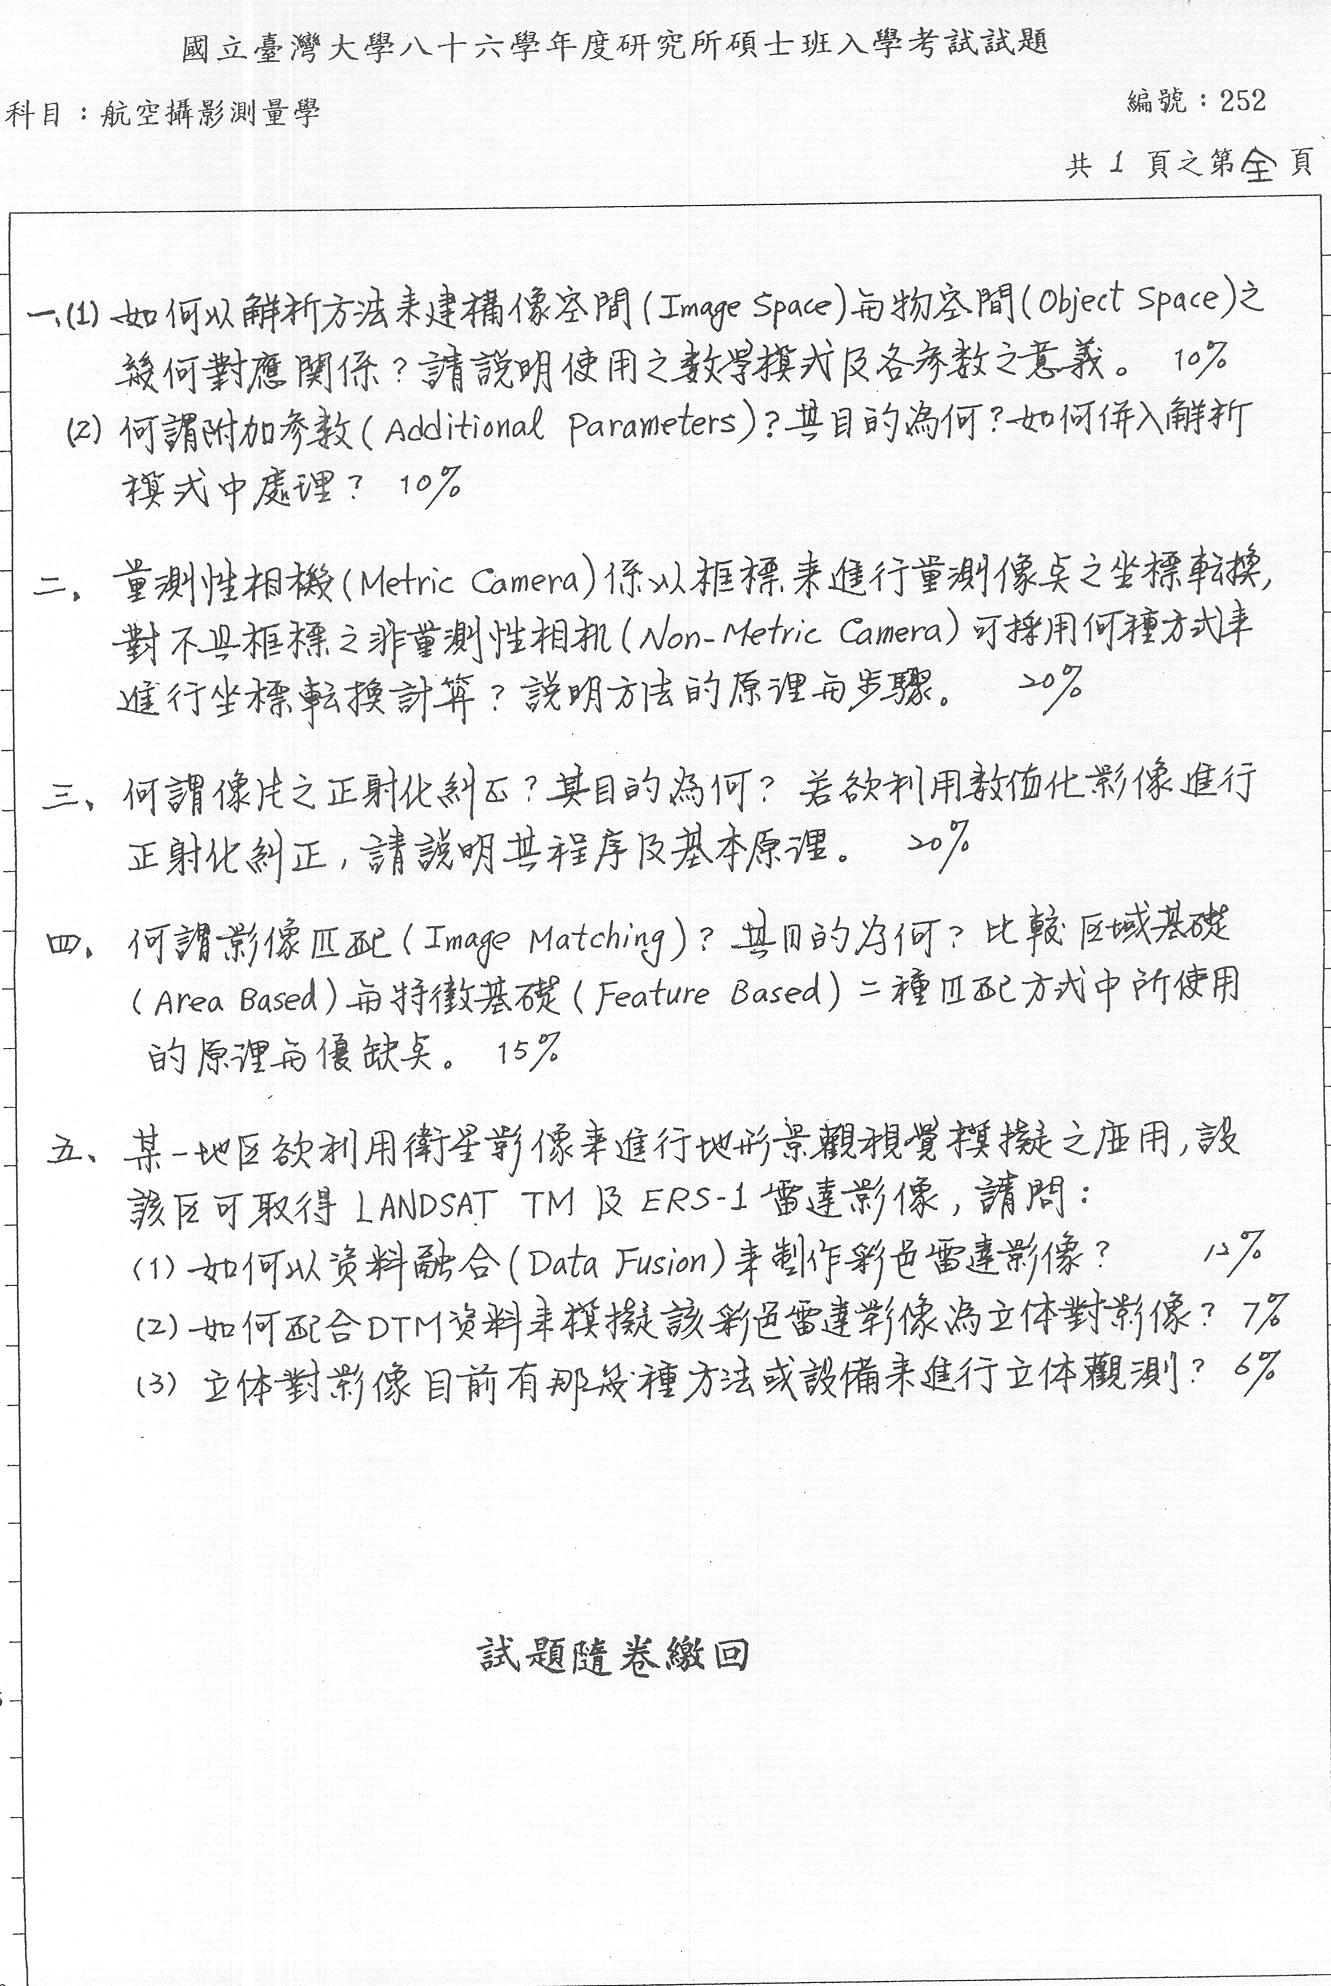 國立臺灣大學八十六學年度研究所碩士班入學考試試題
科目：航空攝影測量學
編號：252
共 1 頁之第全頁
一、(1) 如何以解析方法来建構像空間(Image Space)与物空間(Object Space)之
幾何對應関係？請説明使用之数学模式及各参数之意義。 10%
(2) 何謂附加参数(Additional Parameters)？其目的為何？如何併入解析
模式中處理？ 10%
二、量測性相機(Metric Camera)係以框標来進行量測像点之坐標転換,
對不具框標之非量測性相机(Non-Metric Camera)可採用何種方式来
進行坐標転換計算？説明方法的原理与步驟。 20%
三、何謂像片之正射化糾正？其目的為何？若欲利用数值化影像進行
正射化糾正，請説明其程序及基本原理。 20%
四、何謂影像匹配(Image Matching)？其目的为何？比較区域基礎
(Area Based)与特徵基礎(Feature Based)二種匹配方式中所使用
的原理与優缺点。 15%
五、某一地区欲利用衛星影像来進行地形景觀視覺模擬之应用,設
該区可取得 LANDSAT TM 及 ERS-1 雷達影像，請問：
(1) 如何以資料融合(Data Fusion)来製作彩色雷達影像？ 12%
(2) 如何配合DTM資料来模擬該彩色雷達影像為立体對影像？ 7%
(3) 立体對影像目前有那幾種方法或設備来進行立体觀測？ 6%
試題隨卷繳回